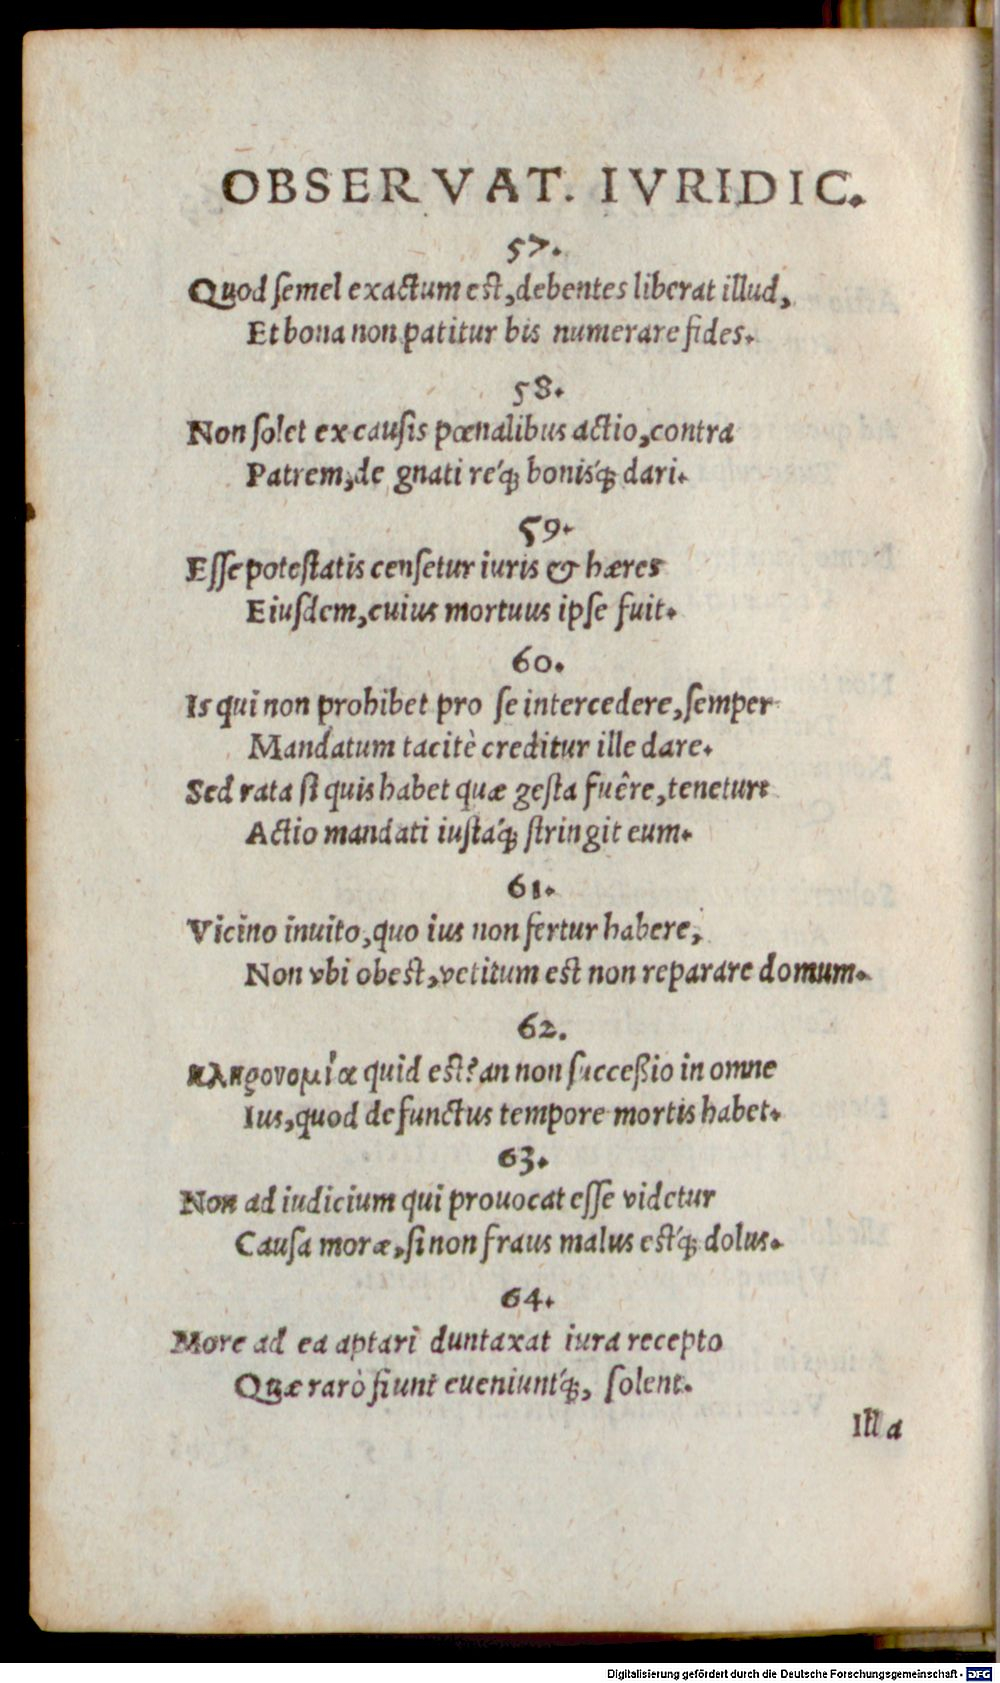 OBSERVAT. IVRIDIC.
57.
Quod semel exactum est, debentes liberat illud,
Et bona non patitur bis numerare fides.
58.
Non solet ex causis pœnalibus actio, contra
Patrem, de gnati ré́q; bonisq́; dari.
59.
Esse potestatis censetur iuris & hæres
Eiusdem, cuius mortuus ipse fuit.
60.
Is qui non prohibet pro se intercedere, semper
Mandatum tacitè creditur ille dare.
Sed rata si quis habet quæ gesta fuêre, tenetur:
Actio mandati iustaq́; stringit eum.
61.
Vicino inuito, quo ius non fertur habere,
Non vbi obest, vetitum est non reparare domum.
62.
κληρονομία quid est? an non successio in omne
Ius, quod defunctus tempore mortis habet.
63.
Non ad iudicium qui prouocat esse videtur
Causa moræ, si non fraus malus estq́; dolus.
64.
More ad ea aptari duntaxat iura recepto
Quæ rarò fiunt eueniuntq́;, solent.
Illa
Digitalisierung gefördert durch die Deutsche Forschungsgemeinschaft - DFG